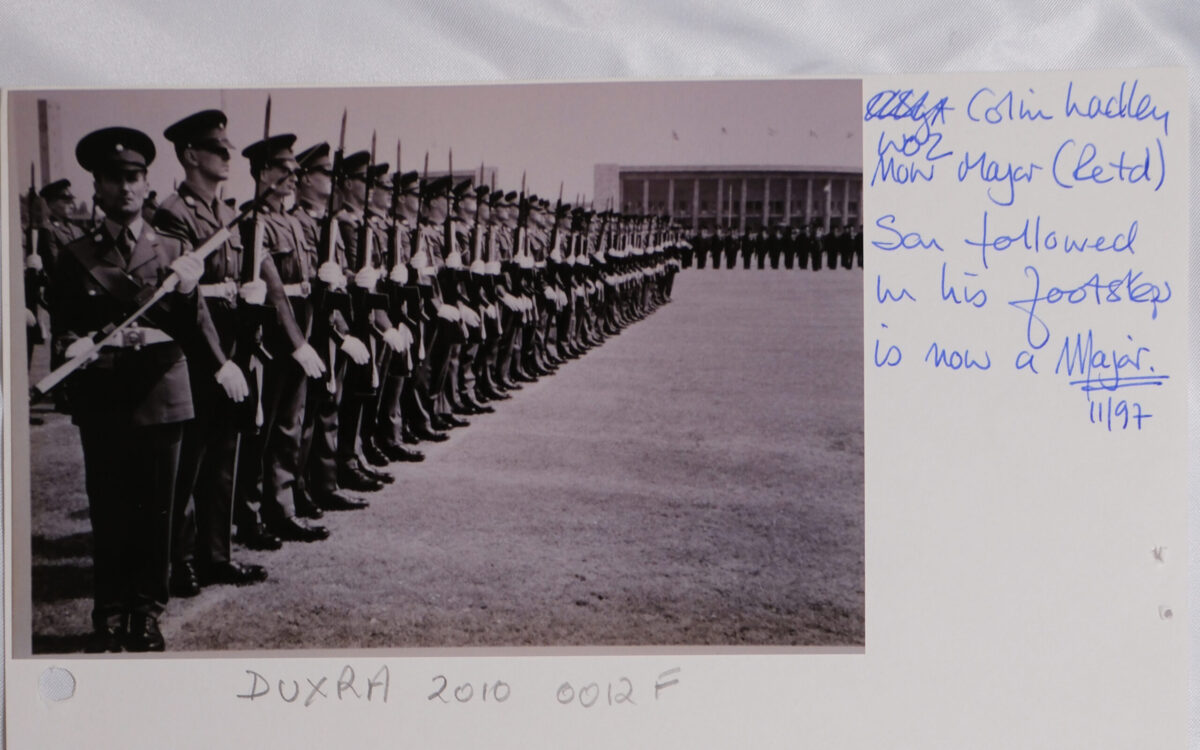 Colin Ladley
WO2
Now Major (Retd)
Son followed
in his footstep
is now a Major.
11/97
DUXRA 2010 0012 F